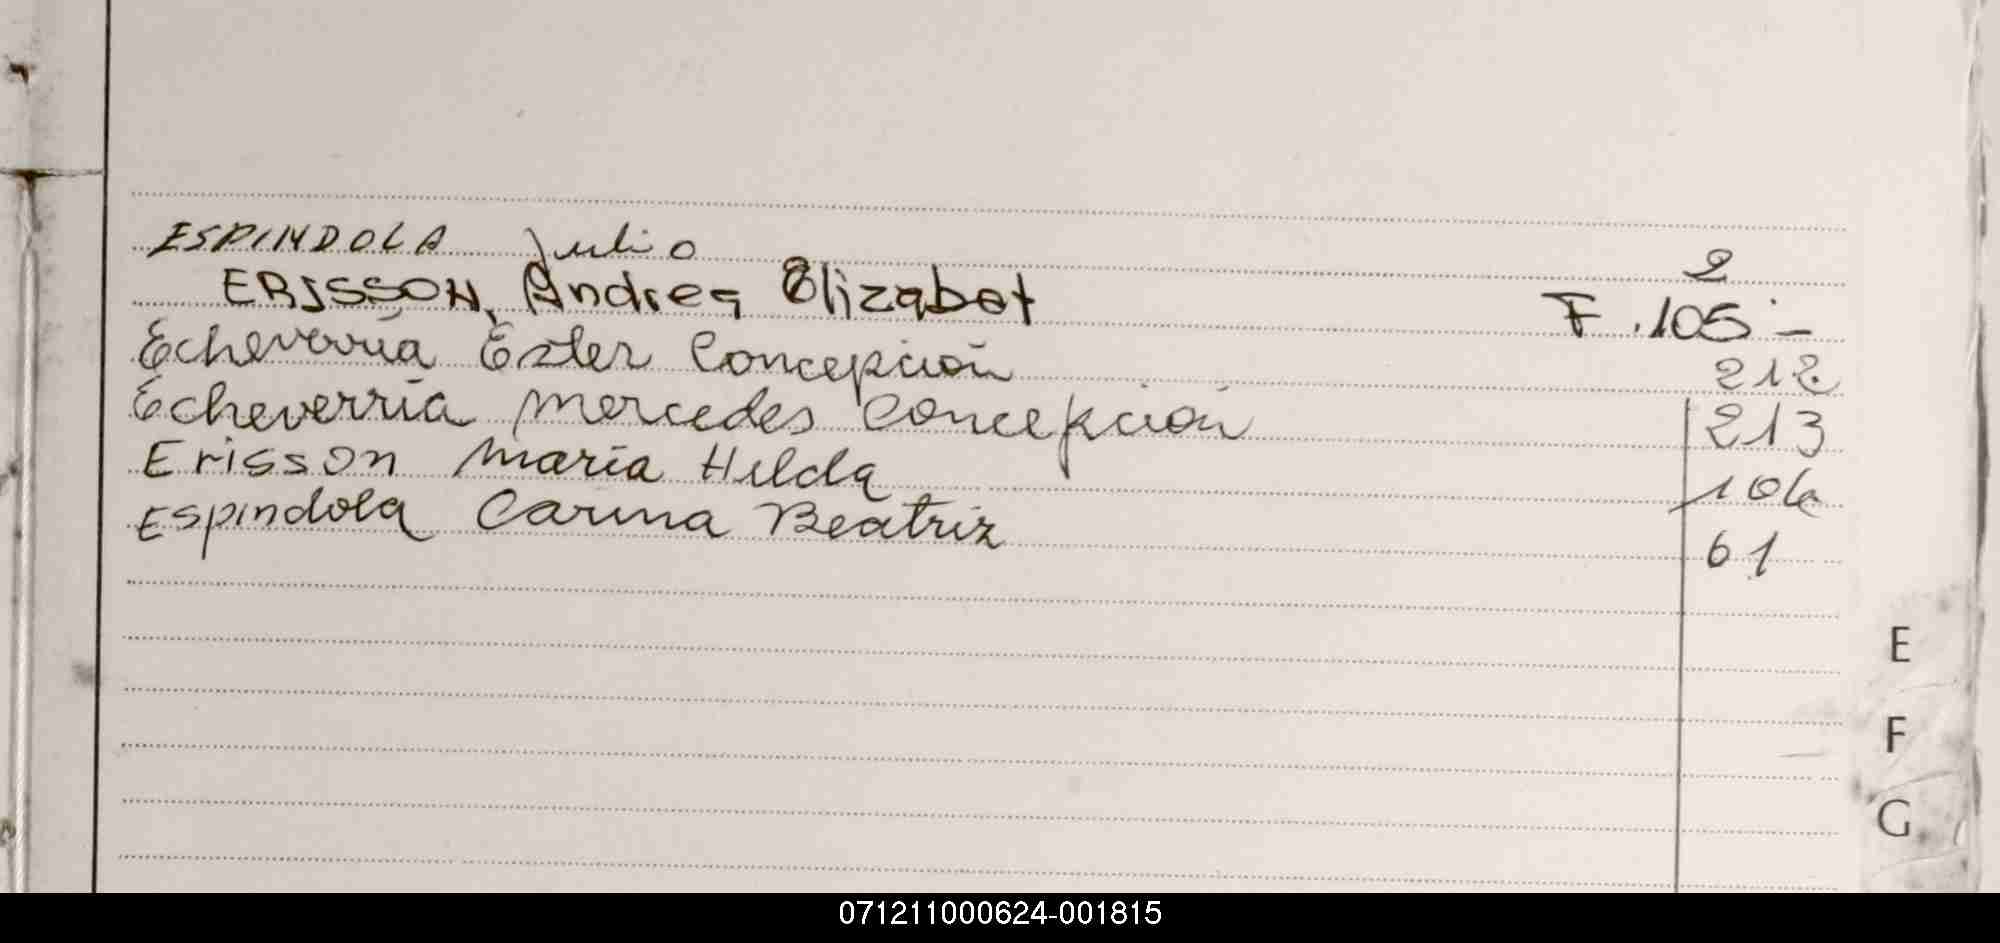 ESPINDOLA Julio 2
ERISSON, Andrea Elizabet F. 105 -
Echeverría Ester Concepción 212
Echeverría Mercedes Concepción 213
Erisson María Hilda 106
Espindola Carina Beatriz 61
E
F
G
071211000624-001815